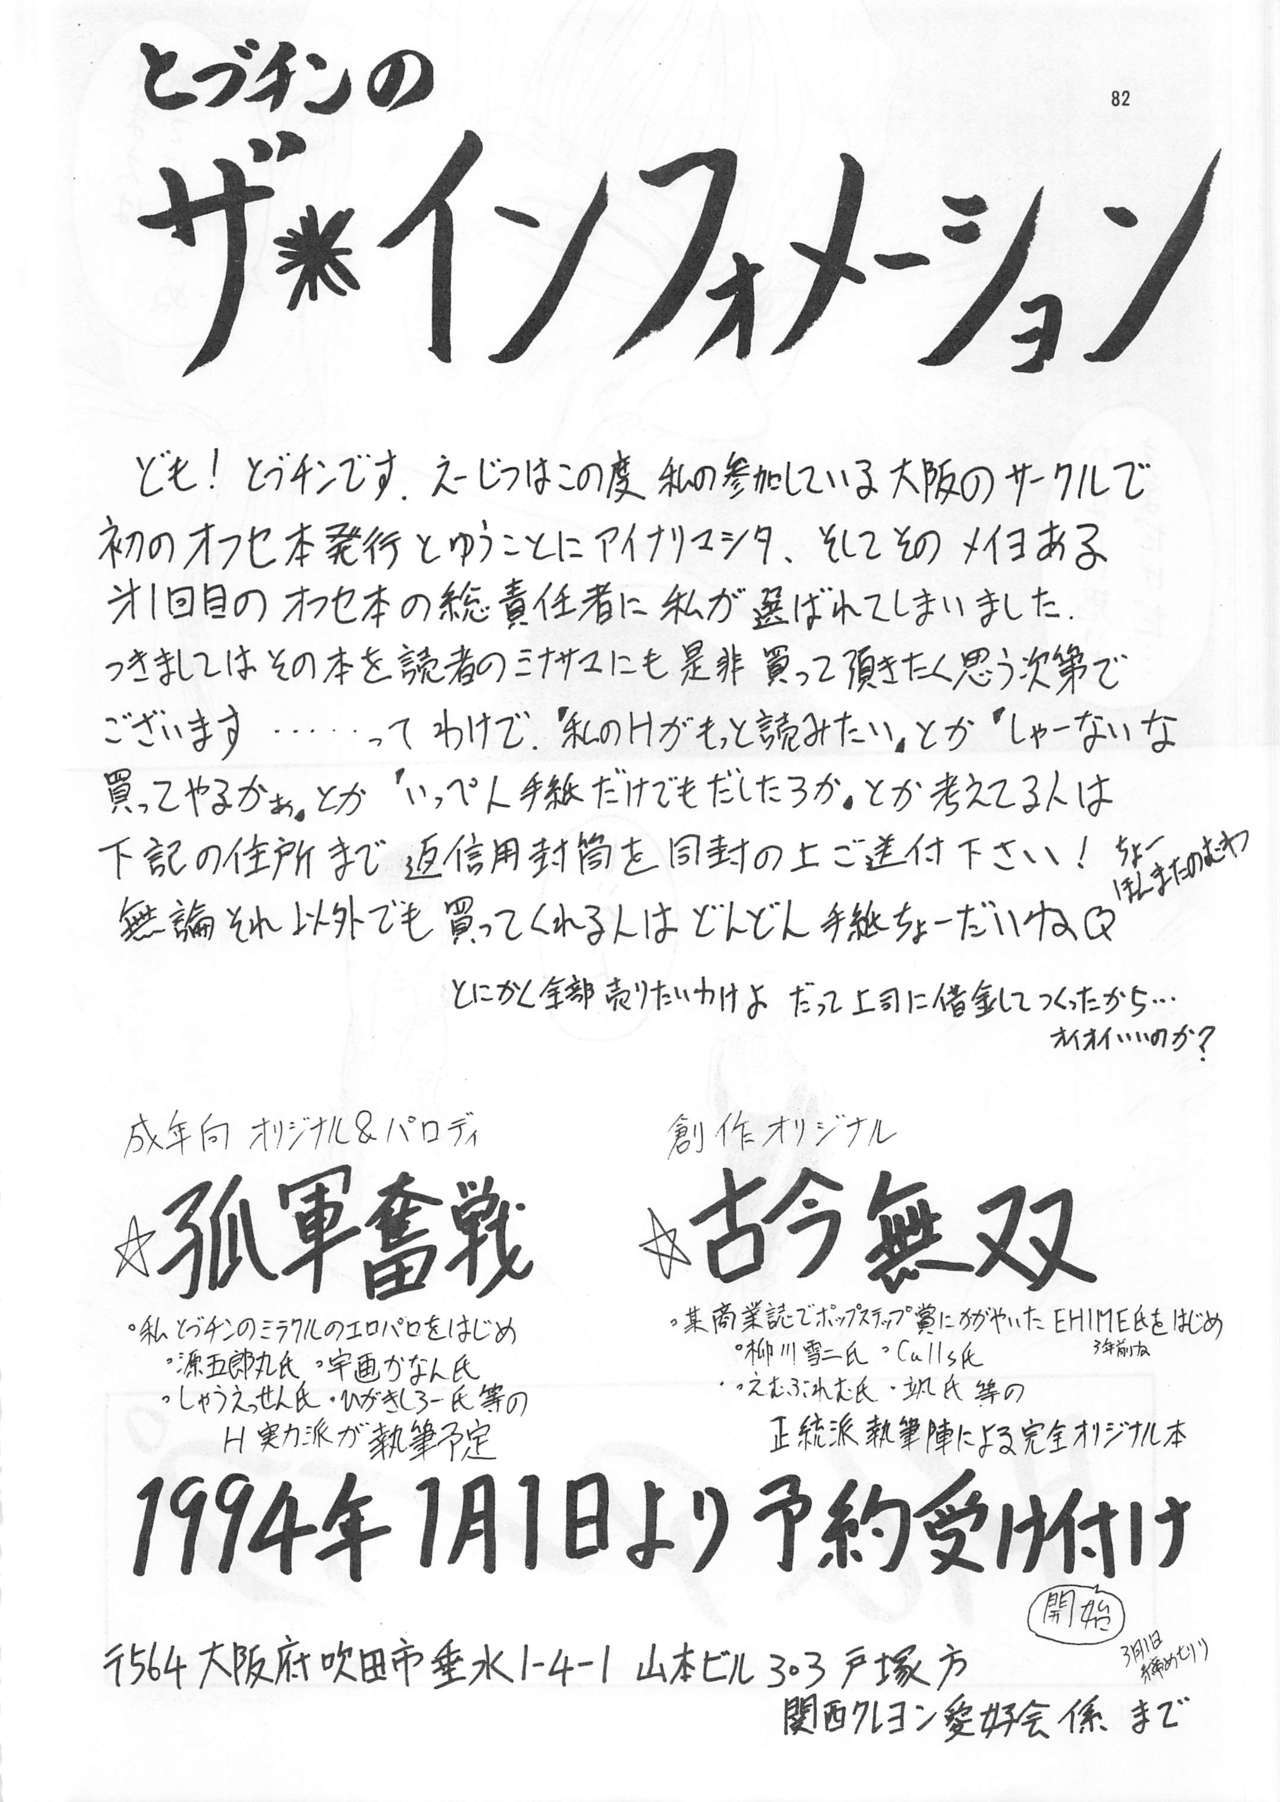 82
とブチンの
ザ＊インフォメーション
ども！とブチンです．えーじつはこの度 私の参加している大阪のサークルで
初のオフセ本発行とゆうことにアイナリマシタ、そしてそのメイヨある
第1回目のオフセ本の総責任者に私が選ばれてしまいました．
つきましてはその本を読者のミナサマにも是非買って頂きたく思う次第で
ございます ……ってわけで．『私のHがもっと読みたい』とか『しゃーないな
買ってやるかぁ』とか『いっぺん手紙だけでもだしたろか』とか考えてる人は
下記の住所まで返信用封筒を同封の上ご送付下さい！
ちょー
ほんまたのむわ
無論それ以外でも買ってくれる人はどんどん手紙ちょーだいけね
とにかく全部売りたいわけよ だって上司に借金してつくったから…
オイオイいいのか？
成年向 オリジナル＆パロディ
☆孤軍奮戦
・私とブチンのミラクルのエロパロをはじめ
・源五郎丸氏 ・宇画かなん氏
・しゃうえっせん氏 ・ひがきしろー氏 等の
H実力派が執筆予定
創作オリジナル
☆古今無双
・某商業誌でポップステップ賞にかがやいた EHIME氏をはじめ
3年前ね
・柳川雪二氏 ・Culls氏
・えむぶれむ氏 ・颯氏 等の
正統派執筆陣による完全オリジナル本
1994年1月1日より予約受け付け
開始
〒564 大阪府吹田市垂水1-4-1 山本ビル303 戸塚方
3月1日
締めきり
関西クレヨン愛好会係 まで